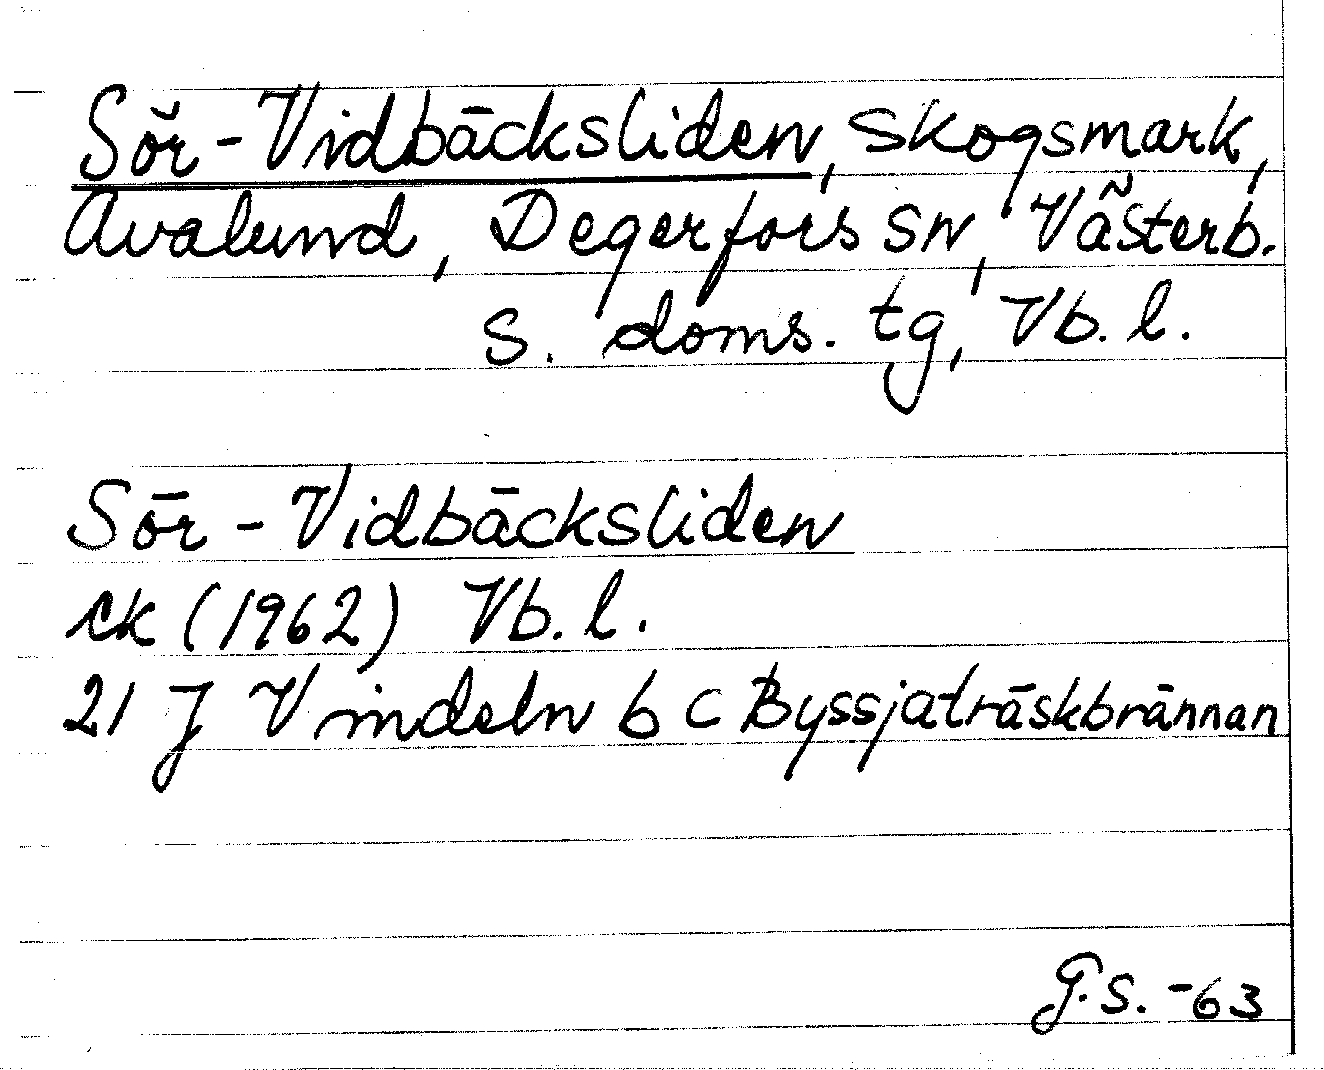 Sör-Vidbäcksliden, skogsmark,
Avalund, Degerfors sn, Västerb.
s. doms. tg, Vb. l.
Sör-Vidbäcksliden
ek (1962) Vb. l.
21 J Vindeln b c Byssjaträskbrännan
G.S. -63